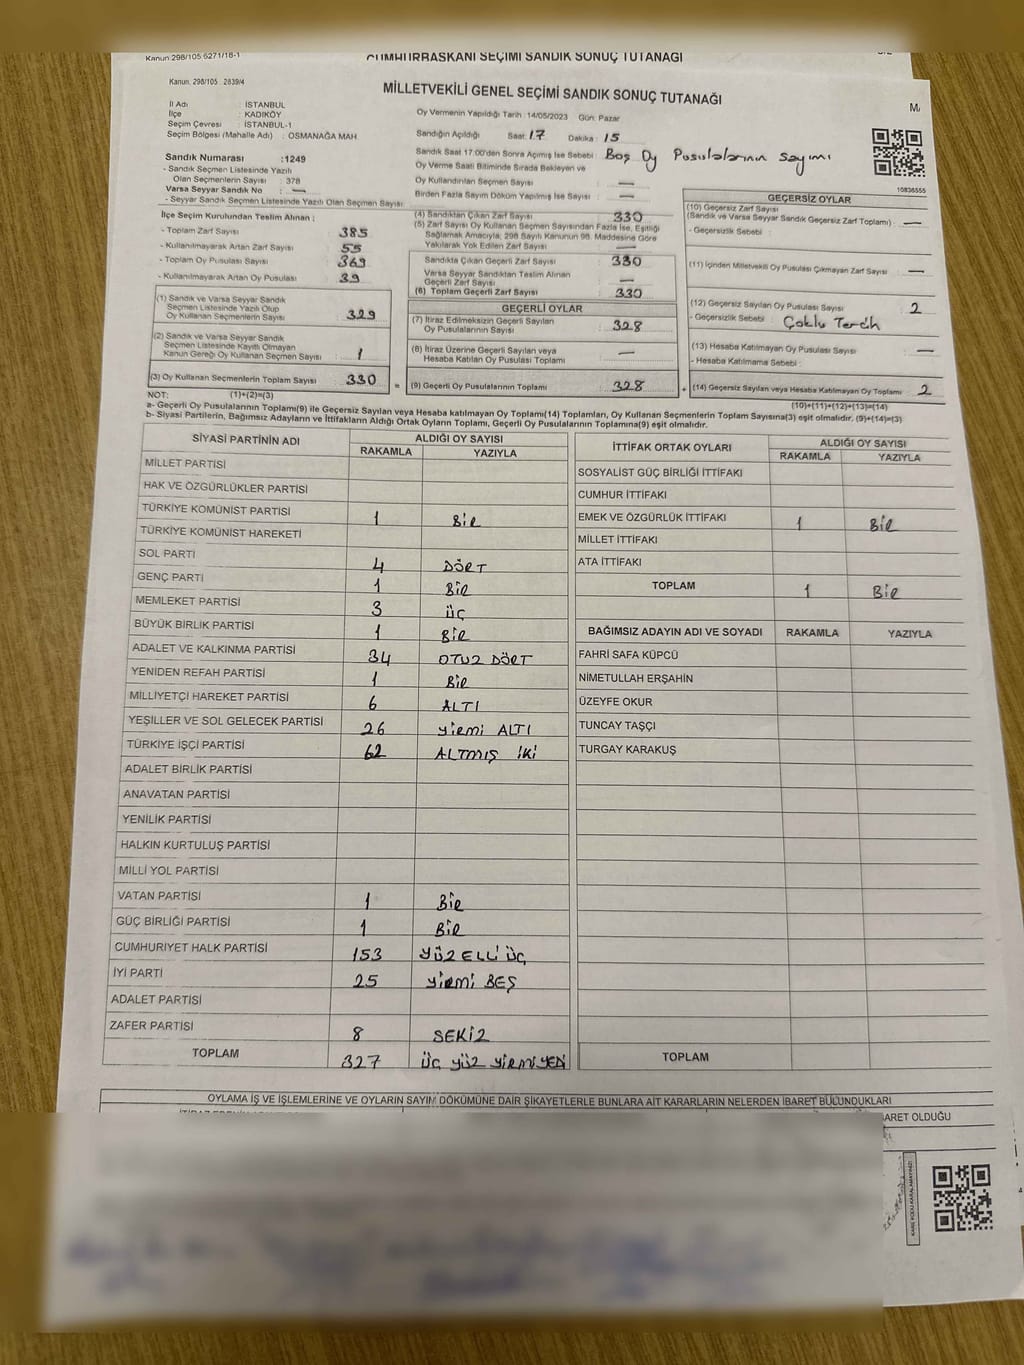 Kanun 298/105 6271/18-1
CUMHURBAŞKANI SEÇİMİ SANDIK SONUÇ TUTANAĞI
Kanun. 298/105 2839/4
MİLLETVEKİLİ GENEL SEÇİMİ SANDIK SONUÇ TUTANAĞI
İl Adı : İSTANBUL
İlçe : KADIKÖY
Seçim Çevresi : İSTANBUL-1
Seçim Bölgesi (Mahalle Adı) : OSMANAĞA MAH.
Sandık Numarası : 1249
- Sandık Seçmen Listesinde Yazılı
Olan Seçmenlerin Sayısı : 378
Varsa Seyyar Sandık No : —
- Seyyar Sandık Seçmen Listesinde Yazılı Olan Seçmen Sayısı :
İlçe Seçim Kurulundan Teslim Alınan :
- Toplam Zarf Sayısı : 385
- Kullanılmayarak Artan Zarf Sayısı : 55
- Toplam Oy Pusulası Sayısı : 369
- Kullanılmayarak Artan Oy Pusulası : 39
(1) Sandık ve Varsa Seyyar Sandık
Seçmen Listesinde Yazılı Olup
Oy Kullanan Seçmenlerin Sayısı : 329
(2) Sandık ve Varsa Seyyar Sandık
Seçmen Listesinde Kayıtlı Olmayan
Kanun Gereği Oy Kullanan Seçmen Sayısı : 1
(3) Oy Kullanan Seçmenlerin Toplam Sayısı : 330
Oy Vermenin Yapıldığı Tarih :14/05/2023 Gün: Pazar
Sandığın Açıldığı Saat: 17 Dakika : 15
Sandık Saat 17:00'den Sonra Açılmış İse Sebebi : Boş Oy Pusulalarının Sayımı
Oy Verme Saati Bitiminde Sırada Bekleyen ve
Oy Kullandırılan Seçmen Sayısı : —
Birden Fazla Sayım Döküm Yapılmış İse Sayısı : —
(4) Sandıktan Çıkan Zarf Sayısı : 330
(5) Zarf Sayısı Oy Kullanan Seçmen Sayısından Fazla İse, Eşitliği
Sağlamak Amacıyla, 298 Sayılı Kanunun 98. Maddesine Göre
Yakılarak Yok Edilen Zarf Sayısı : —
Sandıkta Çıkan Geçerli Zarf Sayısı : 330
Varsa Seyyar Sandıktan Teslim Alınan
Geçerli Zarf Sayısı : —
(6) Toplam Geçerli Zarf Sayısı : 330
GEÇERLİ OYLAR
(7) İtiraz Edilmeksizin Geçerli Sayılan
Oy Pusulalarının Sayısı : 328
(8) İtiraz Üzerine Geçerli Sayılan veya
Hesaba Katılan Oy Pusulası Toplamı : —
= (9) Geçerli Oy Pusulalarının Toplamı : 328
10836555
GEÇERSİZ OYLAR
(10) Geçersiz Zarf Sayısı
(Sandık ve Varsa Seyyar Sandık Geçersiz Zarf Toplamı) : —
- Geçersizlik Sebebi :
(11) İçinden Milletvekili Oy Pusulası Çıkmayan Zarf Sayısı : —
(12) Geçersiz Sayılan Oy Pusulası Sayısı : 2
- Geçersizlik Sebebi : Çoklu Tercih
(13) Hesaba Katılmayan Oy Pusulası Sayısı : —
- Hesaba Katılmama Sebebi :
+ (14) Geçersiz Sayılan veya Hesaba Katılmayan Oy Toplamı : 2
NOT: (1)+(2)=(3) (10)+(11)+(12)+(13)=(14)
a- Geçerli Oy Pusulalarının Toplamı(9) ile Geçersiz Sayılan veya Hesaba katılmayan Oy Toplamı(14) Toplamları, Oy Kullanan Seçmenlerin Toplam Sayısına(3) eşit olmalıdır. (9)+(14)=(3)
b- Siyasi Partilerin, Bağımsız Adayların ve İttifakların Aldığı Ortak Oyların Toplamı, Geçerli Oy Pusulalarının Toplamına(9) eşit olmalıdır.
SİYASİ PARTİNİN ADI ALDIĞI OY SAYISI
RAKAMLA YAZIYLA
MİLLET PARTİSİ
HAK VE ÖZGÜRLÜKLER PARTİSİ
TÜRKİYE KOMÜNİST PARTİSİ 1 BİR
TÜRKİYE KOMÜNİST HAREKETİ
SOL PARTİ 4 DÖRT
GENÇ PARTİ 1 BİR
MEMLEKET PARTİSİ 3 ÜÇ
BÜYÜK BİRLİK PARTİSİ 1 BİR
ADALET VE KALKINMA PARTİSİ 34 OTUZ DÖRT
YENİDEN REFAH PARTİSİ 1 BİR
MİLLİYETÇİ HAREKET PARTİSİ 6 ALTI
YEŞİLLER VE SOL GELECEK PARTİSİ 26 YİRMİ ALTI
TÜRKİYE İŞÇİ PARTİSİ 62 ALTMIŞ İKİ
ADALET BİRLİK PARTİSİ
ANAVATAN PARTİSİ
YENİLİK PARTİSİ
HALKIN KURTULUŞ PARTİSİ
MİLLİ YOL PARTİSİ
VATAN PARTİSİ 1 BİR
GÜÇ BİRLİĞİ PARTİSİ 1 BİR
CUMHURİYET HALK PARTİSİ 153 YÜZ ELLİ ÜÇ
İYİ PARTİ 25 YİRMİ BEŞ
ADALET PARTİSİ
ZAFER PARTİSİ 8 SEKİZ
TOPLAM 327 ÜÇ YÜZ YİRMİ YEDİ
İTTİFAK ORTAK OYLARI ALDIĞI OY SAYISI
RAKAMLA YAZIYLA
SOSYALİST GÜÇ BİRLİĞİ İTTİFAKI
CUMHUR İTTİFAKI
EMEK VE ÖZGÜRLÜK İTTİFAKI 1 BİR
MİLLET İTTİFAKI
ATA İTTİFAKI
TOPLAM 1 BİR
BAĞIMSIZ ADAYIN ADI VE SOYADI RAKAMLA YAZIYLA
FAHRİ SAFA KÜPCÜ
NİMETULLAH ERŞAHİN
ÜZEYFE OKUR
TUNCAY TAŞÇI
TURGAY KARAKUŞ
TOPLAM
OYLAMA İŞ VE İŞLEMLERİNE VE OYLARIN SAYIM DÖKÜMÜNE DAİR ŞİKAYETLERLE BUNLARA AİT KARARLARIN NELERDEN İBARET BULUNDUKLARI
BARET OLDUĞU